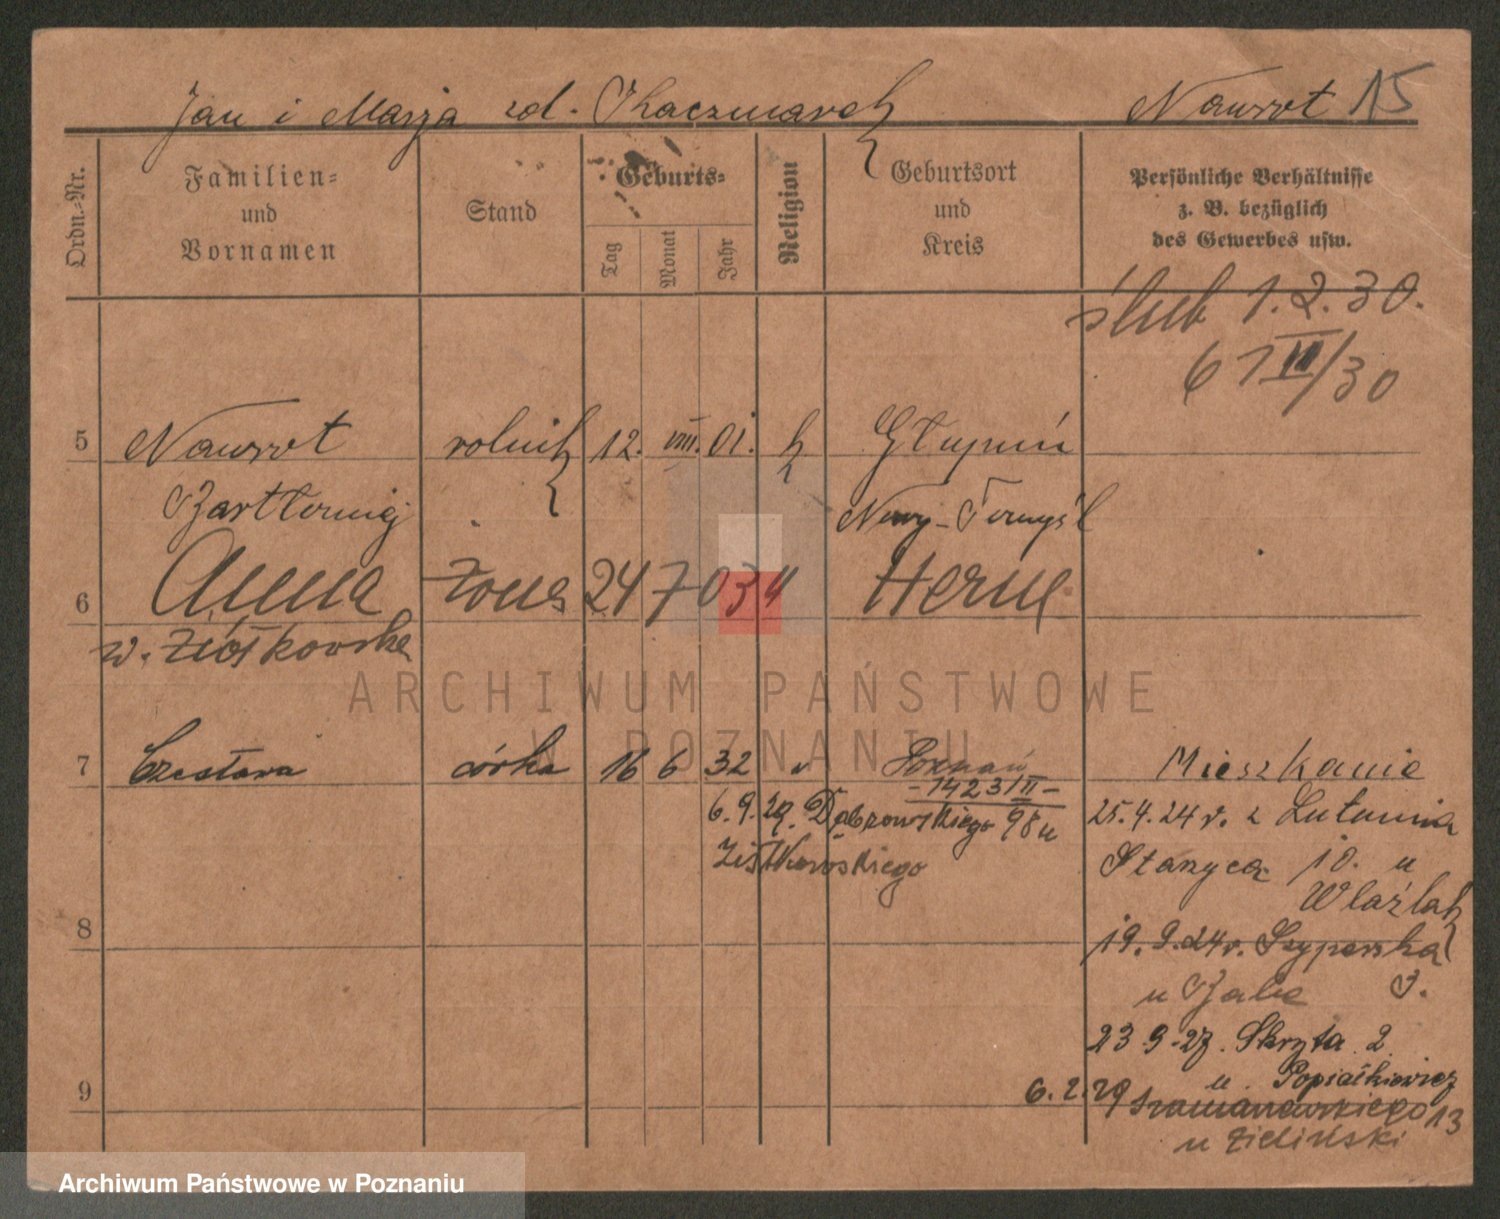 Jan i Marja zd. Kaczmarek Nawrot 15
Ordn.-Nr.
Familien- und Vornamen
Stand
Geburts-
Tag
Monat
Jahr
Religion
Geburtsort und Kreis
Persönliche Verhältnisse
z. B. bezüglich
des Gewerbes usw.
ślub 1.2.30.
61 III/30
5 Nawrot rolnik 12. VIII. 01. k Głupoń
Bartłomiej Nowy-Tomyśl
6 Anna żona 24 7 03 Herne
w. Ziółkowska
ARCHIWUM PAŃSTWOWE
W POZNANIU
7 Czesława córka 16 6 32 Poznań Mieszkanie
-1423III-
6.9.29. Dąbrowskiego 98 u
Ziółkowskiego
25.4.24 r. z Lutynia
Stanyca 10. u
Wlaźlak
8
19.9.24 r. Szyperska
u 
23.9.27. Skryta 2
u. Popiałkiewicz
9
6.2.29 Szamarzewskiego 13
u Zieliński
Archiwum Państwowe w Poznaniu